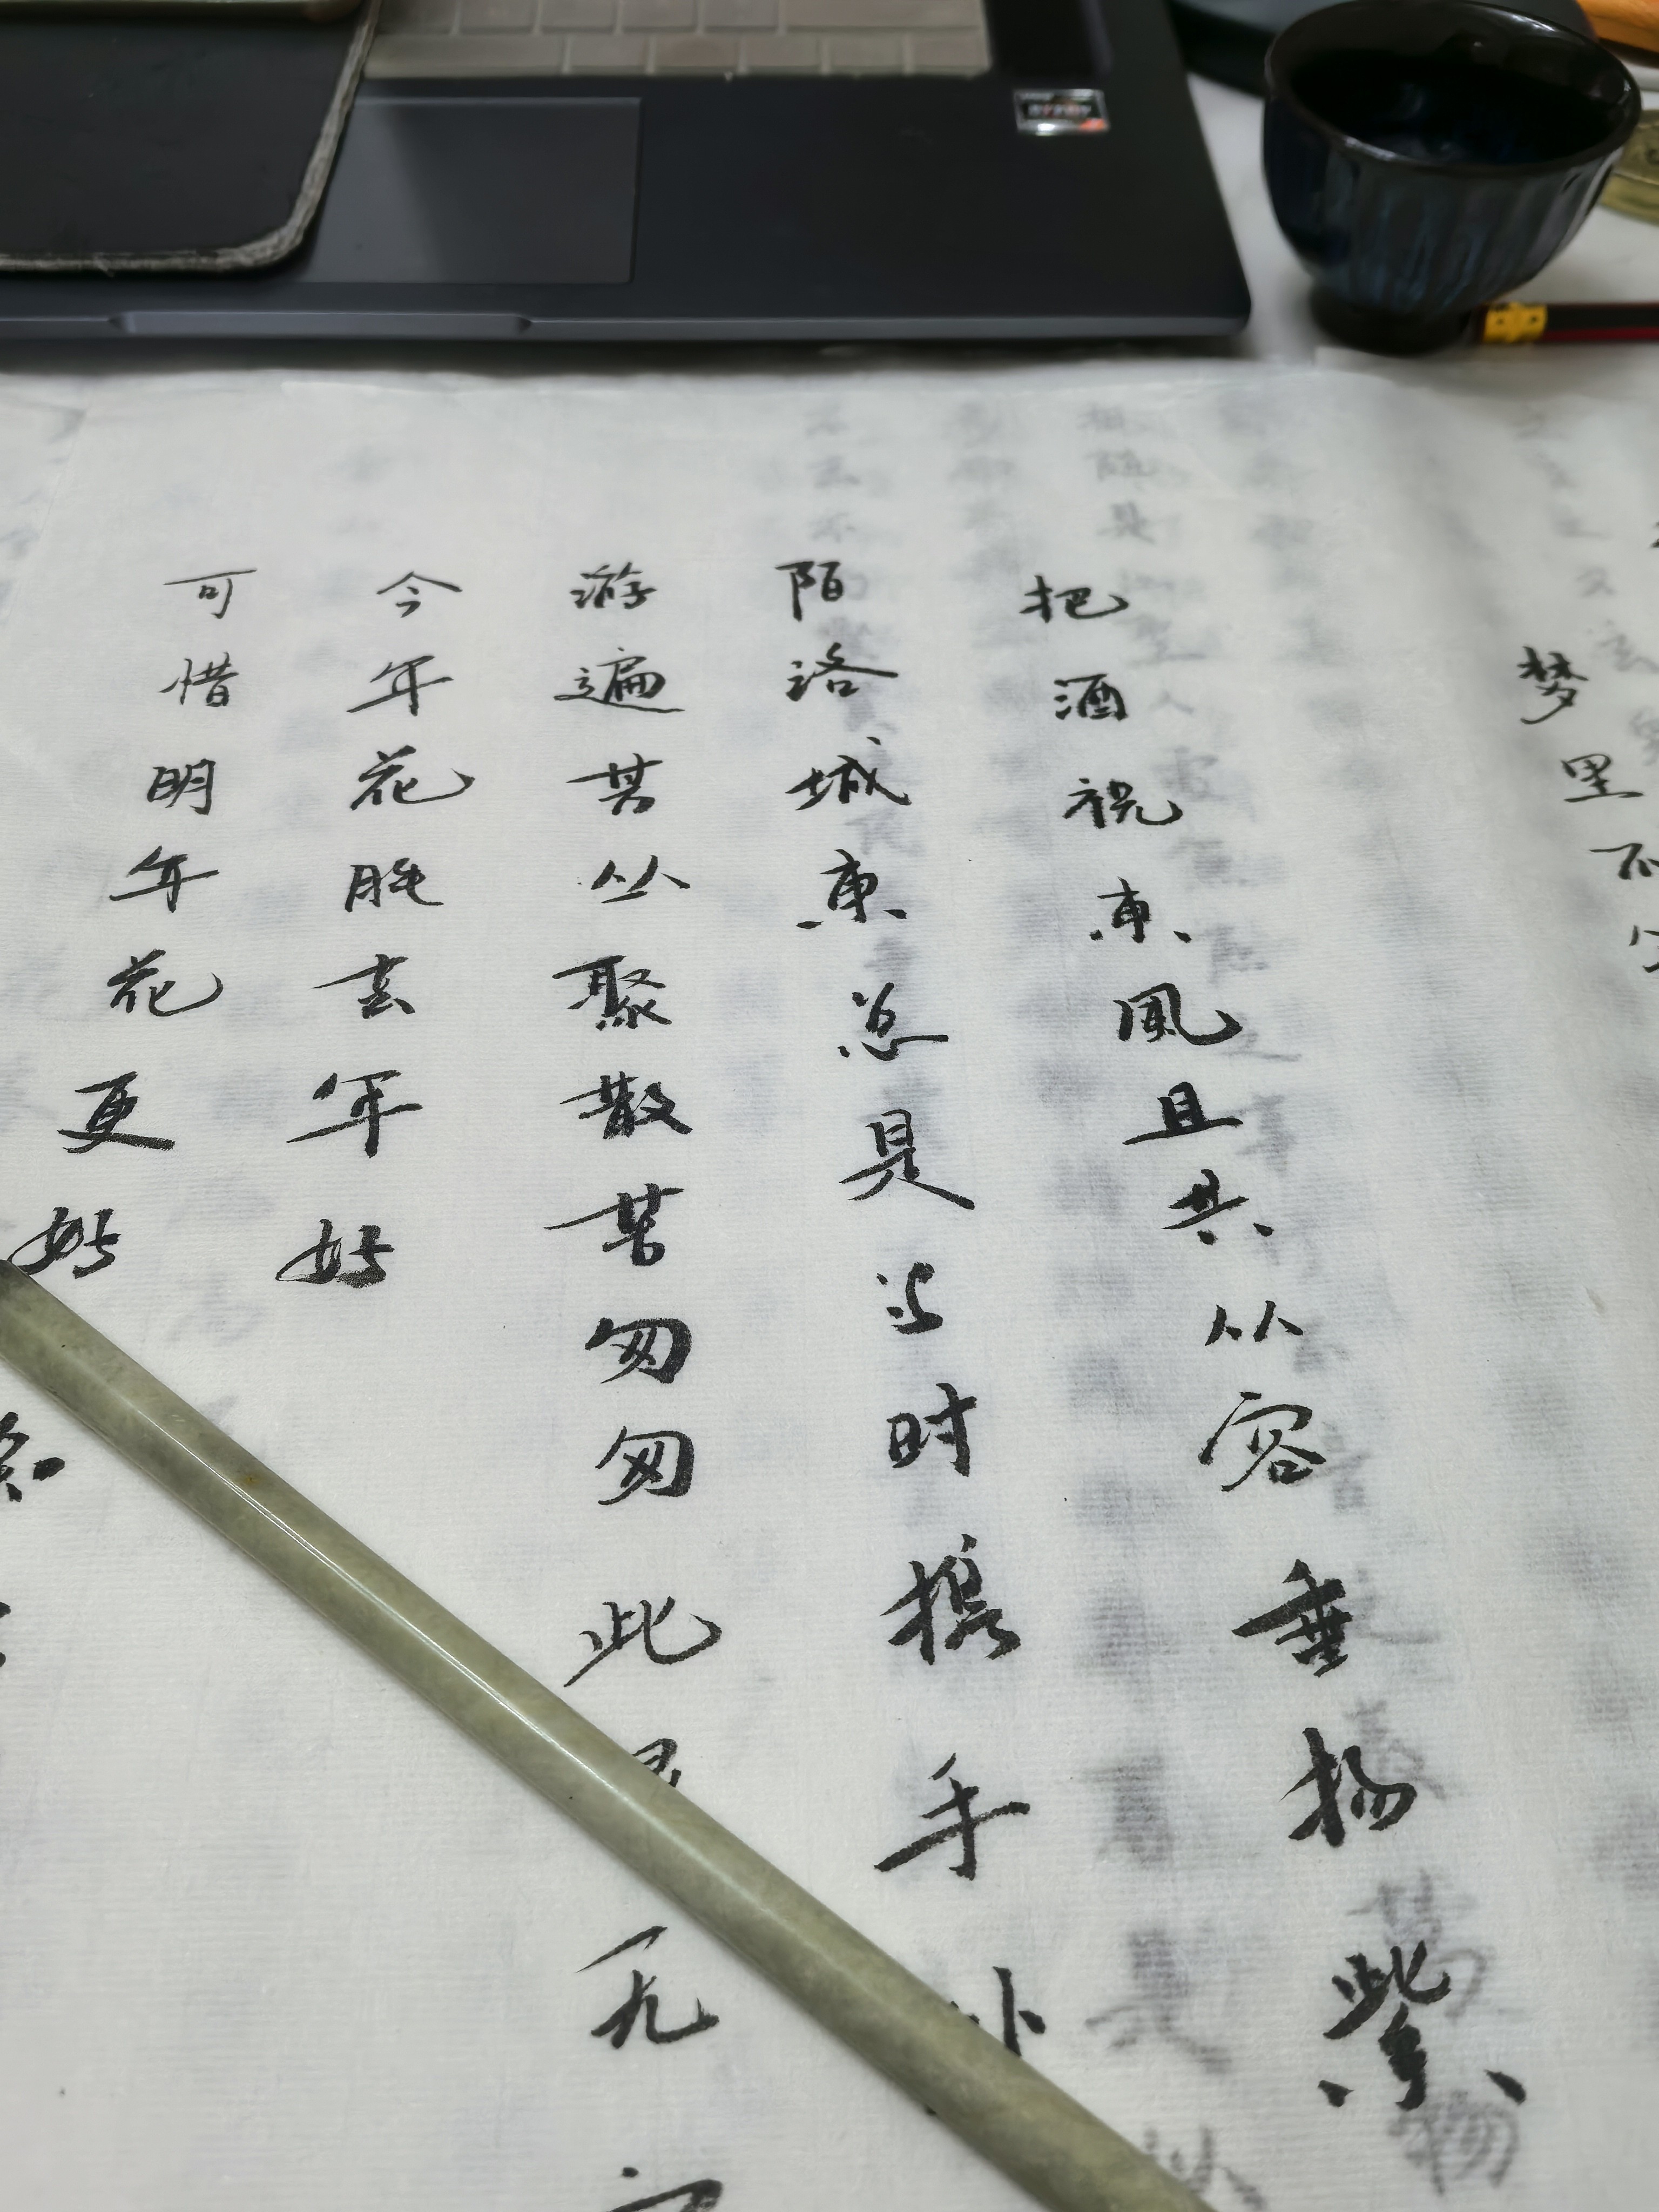 梦里不
把酒祝東風且共从容垂杨紫
陌洛城東总是当时携手处
游遍芳丛聚散苦匆匆此恨无
今年花胜去年好
可惜明年花更好